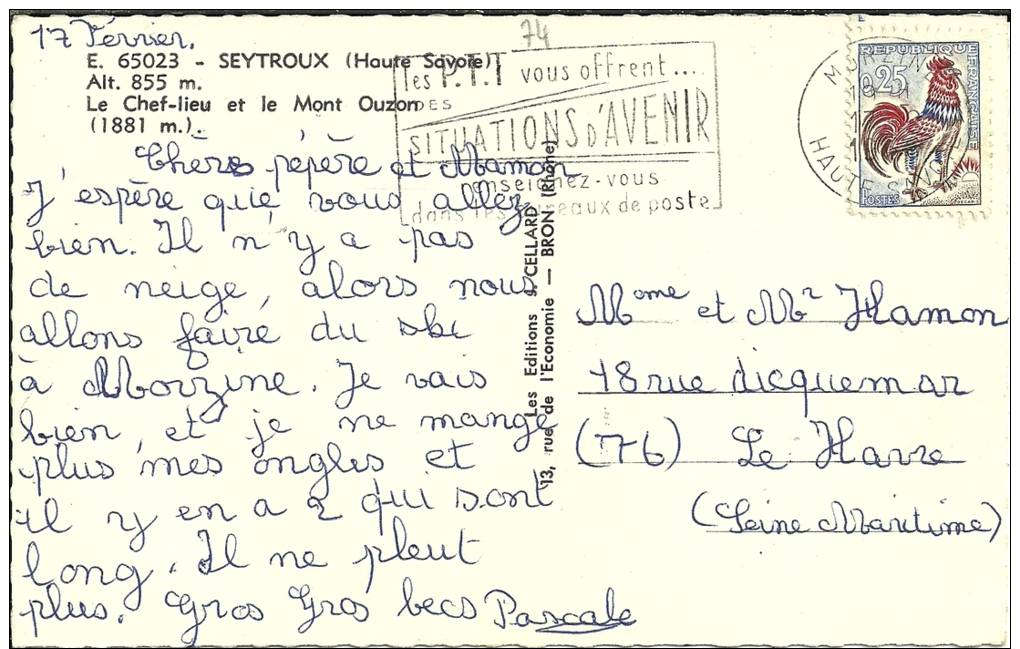 74
17 Février.
E. 65023 - SEYTROUX (Haute Savoie)
Alt. 855 m.
Le Chef-lieu et le Mont Ouzon
(1881 m.).
Chers pépère et Mamon
J'espère que vous allez
bien. Il n'y a pas
de neige, alors nous
allons faire du ski
à Morzine. Je vais
bien, et je ne mange
plus mes ongles et
il y en a 2 qui sont
long. Il ne pleut
plus. Gros Gros becs Pascale
les P.T.T vous offrent....
DES
SITUATIONS D'AVENIR
enseignez-vous
dans les bureaux de poste
Les Editions J. CELLARD
13, rue de l'Economie — BRON (Rhône)
REPUBLIQUE FRANÇAISE
0,25
POSTES
HAUTE SAVOIE
Mme et Mr Hamon
18 rue dicquemar
(76) Le Havre
(Seine Maritime)